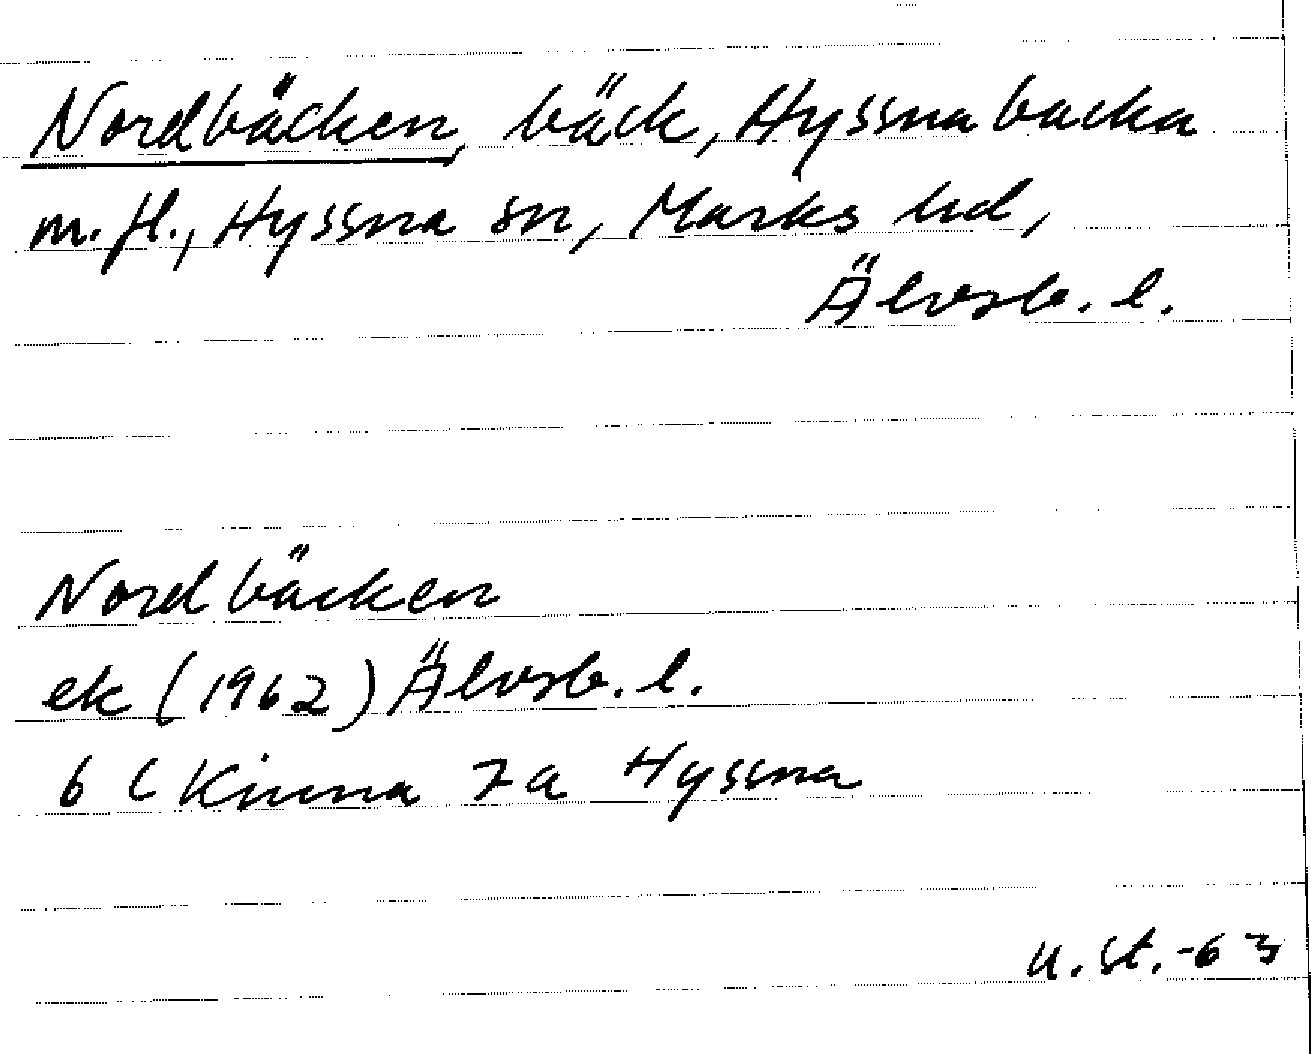 Nordbäcken, bäck, Hyssna backa
m.fl., Hyssna sn, Marks hd,
Älvsb. l.
Nordbäcken
ek (1962) Älvsb. l.
6 C Kinna 7a Hyssna
u. st. -63